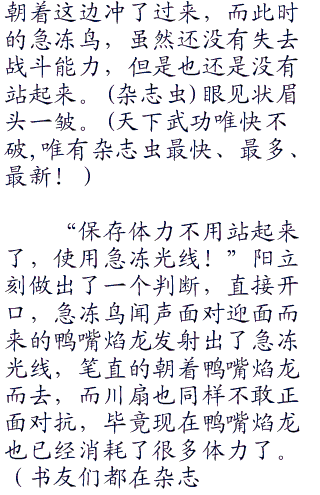 朝着这边冲了过来，而此时
的急冻鸟，虽然还没有失去
战斗能力，但是也还是没有
站起来。(杂志虫)眼见状眉
头一皱。(天下武功唯快不
破,唯有杂志虫最快、最多、
最新！)
“保存体力不用站起来
了，使用急冻光线！”阳立
刻做出了一个判断，直接开
口，急冻鸟闻声面对迎面而
来的鸭嘴焰龙发射出了急冻
光线，笔直的朝着鸭嘴焰龙
而去，而川扇也同样不敢正
面对抗，毕竟现在鸭嘴焰龙
也已经消耗了很多体力了。
（书友们都在杂志